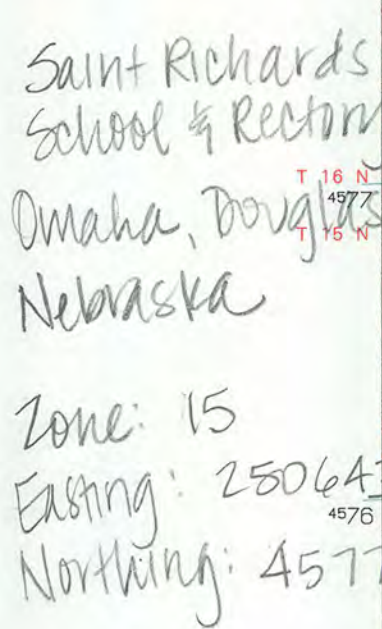 Saint Richards
School & Rectory
T 16 N
4577
Omaha, Douglas
T 15 N
Nebraska
Zone: 15
Easting: 250643
4576
Northing: 4577